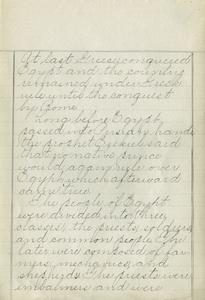 At last Greece conquered
Egypt and the country
remained under Greek
rule until the conquest
by Rome.
Long before Egypt
passed into Persian hands
the prophet Ezekiel said
that no native prince
would again rule over
Egypt which afterward
came true.
The people of Egypt
were divided into three
classes, the priests, soldiers
and common people. The
later were composed of far-
mers, mechanics and
shepherds. The priests were
embalmers and were